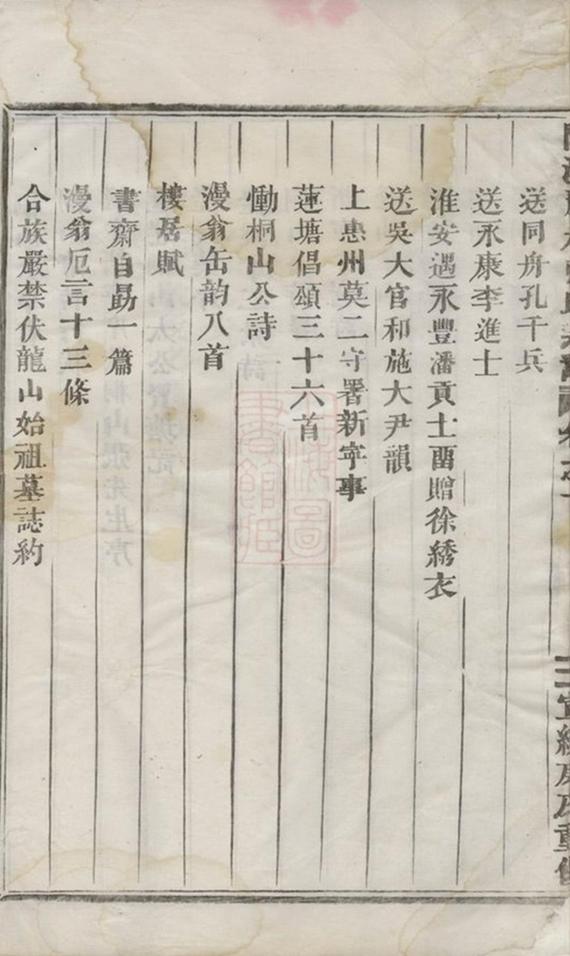 送同舟孔千兵
送永康李進士
淮安遇永豐潘貢士畱贈徐綉衣
送吳大官和施大尹韻
上惠州莫二守署新寕事
蓮塘倡頌三十六首
慟桐山公詩
漫翁缶韵八首
樓居賦
書齋自勗一篇
漫翁卮言十三條
合族嚴禁伏龍山始祖墓誌約